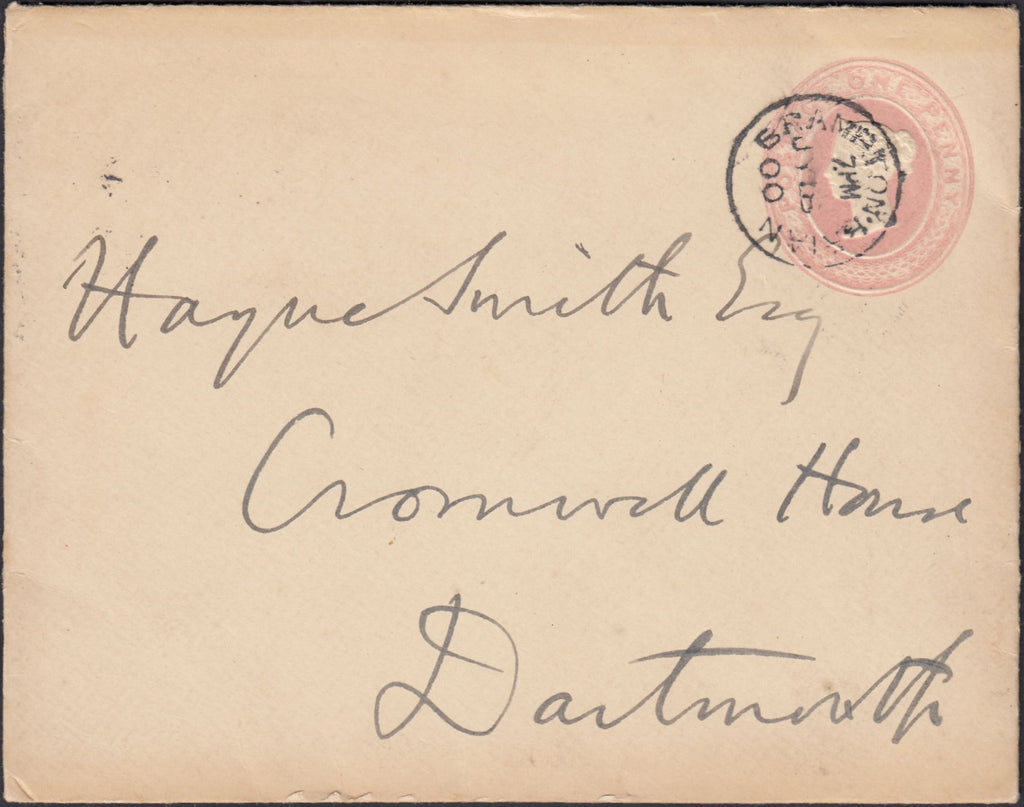 ONE PENNY
BRAMPTON
00
Hayne Smith Esq
Cromwell House
Dartmouth